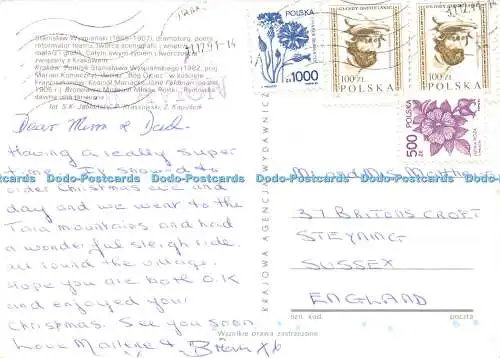 Stanisław Wyspiański (1869-1907), dramaturg, poeta,
reformator teatru, twórca scenografii i wnętrz,
malarz i grafik. Całym swym życiem i twórczością
związany z Krakowem
Kraków. Pomnik Stanisława Wyspiańskiego (1982, proj.
Marian Konieczny). Witraż „Bóg Ojciec" w kościele
Franciszkanów.
fot. S.K. Jabłońska, P. Krassowski, Z. Kapuścik
Dear Mum & Dad
Having a really super
time. It snowed to
order Christmas eve and
day and we went to the
Tatra mountains and had
a wonderful sleigh ride
all round the village.
Hope you are both O.K
and enjoyed your
Christmas. See you soon
Love Marlene & Brian xx
KRAJOWA AGENCJA WYDAWNICZA
POLSKA
zł 1000
31.12.91-14
100 ZŁ
POLSKA
31.12
100 ZŁ
POLSKA
500 ZŁ
POLSKA
31 BRITONS CROFT
STEYNING
SUSSEX
ENGLAND
ozn. kod.
poczta
Wszelkie prawa zastrzeżone
Dodo-Postcards Dodo-Postcards Dodo-Postcards Dodo-Postcards Dodo-Postcards